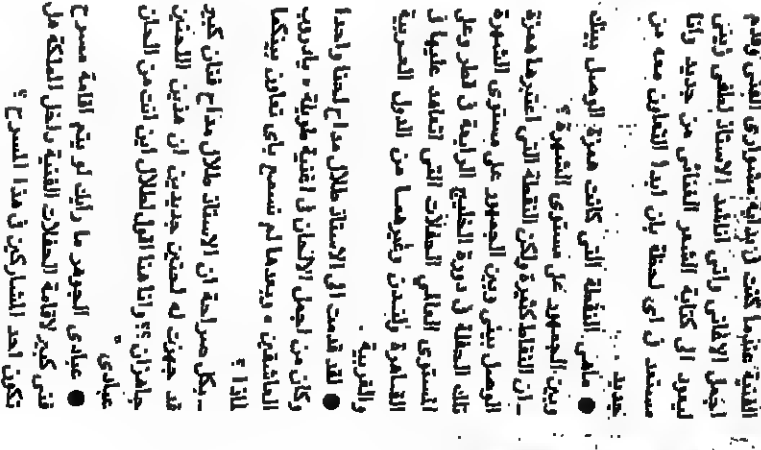 الفنية عندما كنت في بداية مشواري الفني وقدم
أجمل الأغاني وانني اناشد الاستاذ لطفي زيني
ليعود الى كتابة الشعر الغنائي من جديد وأنا
مستعد في أي لحظة بأن ابدأ التعاون معه من
جديد .
● ماهي النقطة التي كانت همزة الوصل بينك
وبين الجمهور على مستوى الشهرة ؟
ـ ان النقاط كثيرة ولكن النقطة التي اعتبرها همزة
الوصل بيني وبين الجمهور على مستوى الشهرة
تلك الحفلة في دورة الخليج الرابعة في قطر وعلى
المستوى العالمي الحفلات التي اتعاقد عليها في
القاهرة ولندن وغيرهما من الدول العربية
والغربية .
● لقد قدمت الى الاستاذ طلال مداح لحنا واحدا
وكان من أجمل الألحان في اغنية طويلة « يادروب
العاشقين » وبعدها لم نسمع باي تعاون بينكما
لماذا ؟
ـ بكل صراحة ان الاستاذ طلال مداح فنان كبير
قد جهزت له لحنين جديدين ان هذين اللحنين
جاهزان ؟؟ وانا هنا اقول لطلال اين انت من الحان
عبادي "
● عبادي الجوهر ما رأيك لو يتم اقامة مسرح
فني كبير لاقامة الحفلات الفنية داخل المملكة هل
تكون احد المشاركين في هذا المسرح ؟